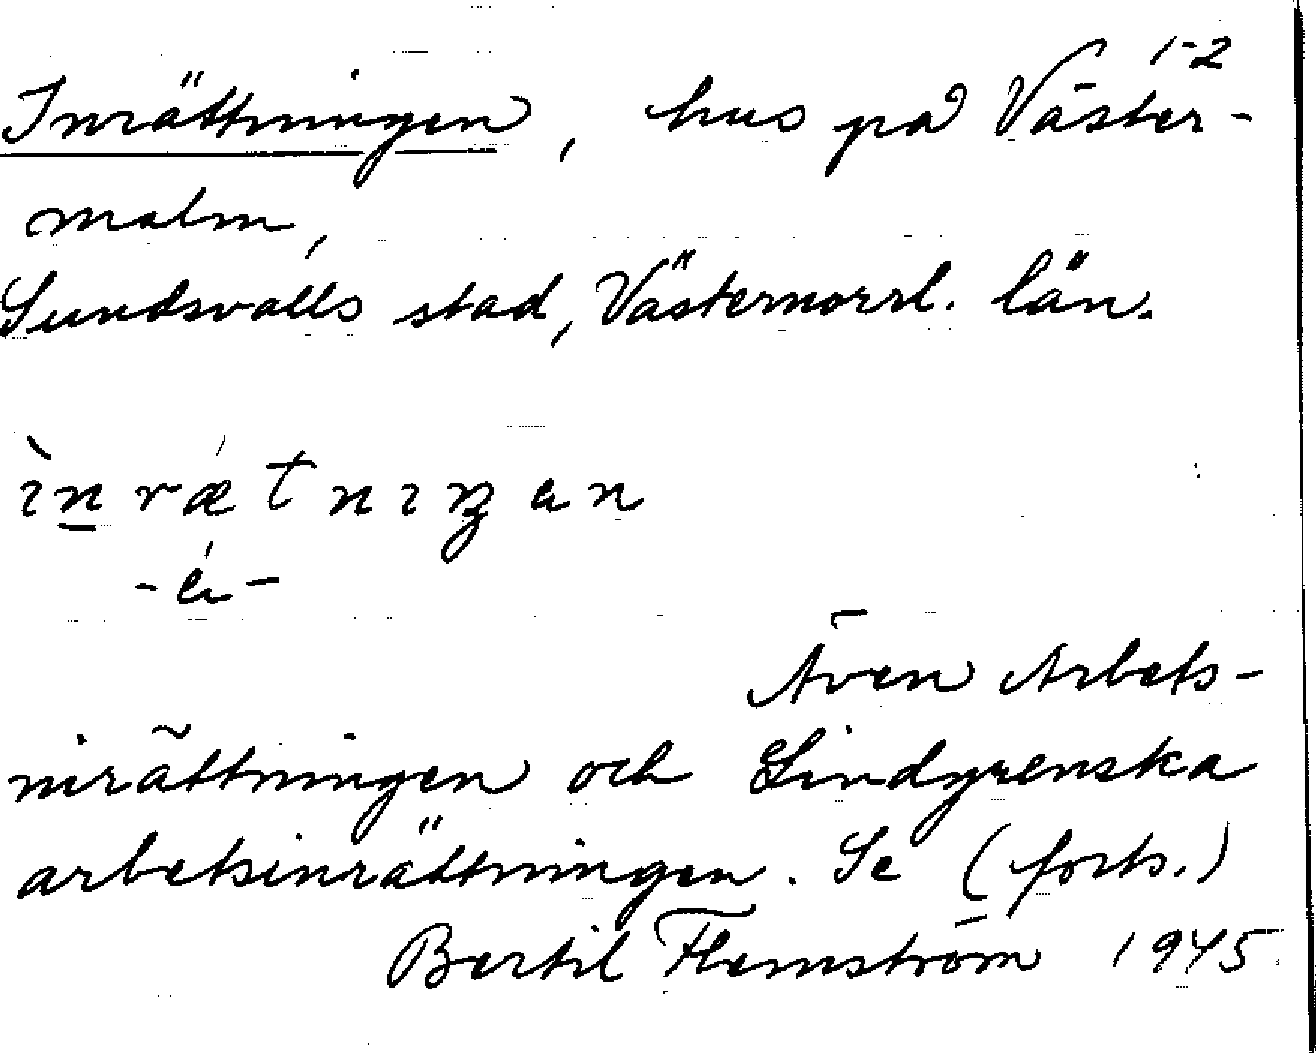 1-2
Inrättningen, hus på Väster-
malm,
Sundsvalls stad, Västernorrl. län.
ìn rǽ t n ı ŋ a n
- é -
Även Arbets-
inrättningen och Lindgrenska
arbetsinrättningen. Se (forts.)
Bertil Flemström 1945